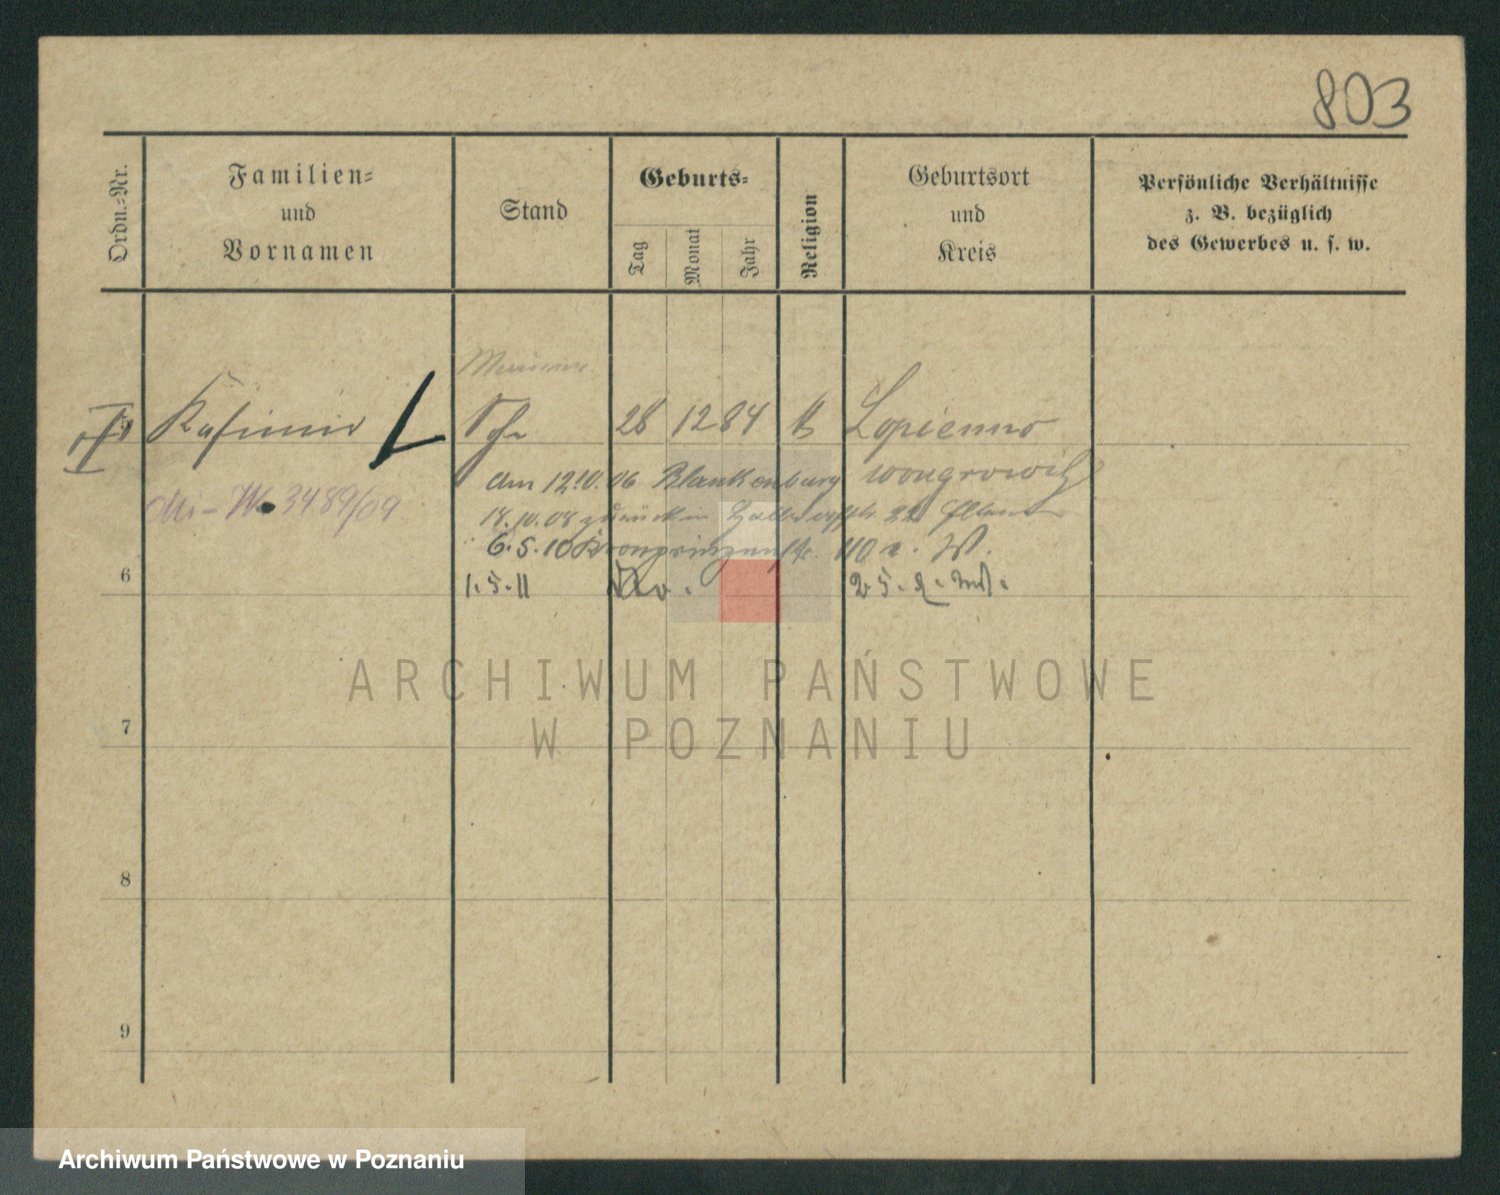 803
Ordn.-Nr.
Familien-
und
Vornamen
Stand
Geburts-
Tag
Monat
Jahr
Religion
Geburtsort
und
Kreis
Persönliche Verhältnisse
z. B. bezüglich
des Gewerbes u. s. w.
Kasimir 28 12 84 Lopienno
am 12.10.06 Blankenburg Wongrowitz
3489/09
18.10.08 zurück in 22
6.5.10 Kronprinzenstr. 110
6 1.5.11 25.
7
8
9
ARCHIWUM PAŃSTWOWE
W POZNANIU
Archiwum Państwowe w Poznaniu